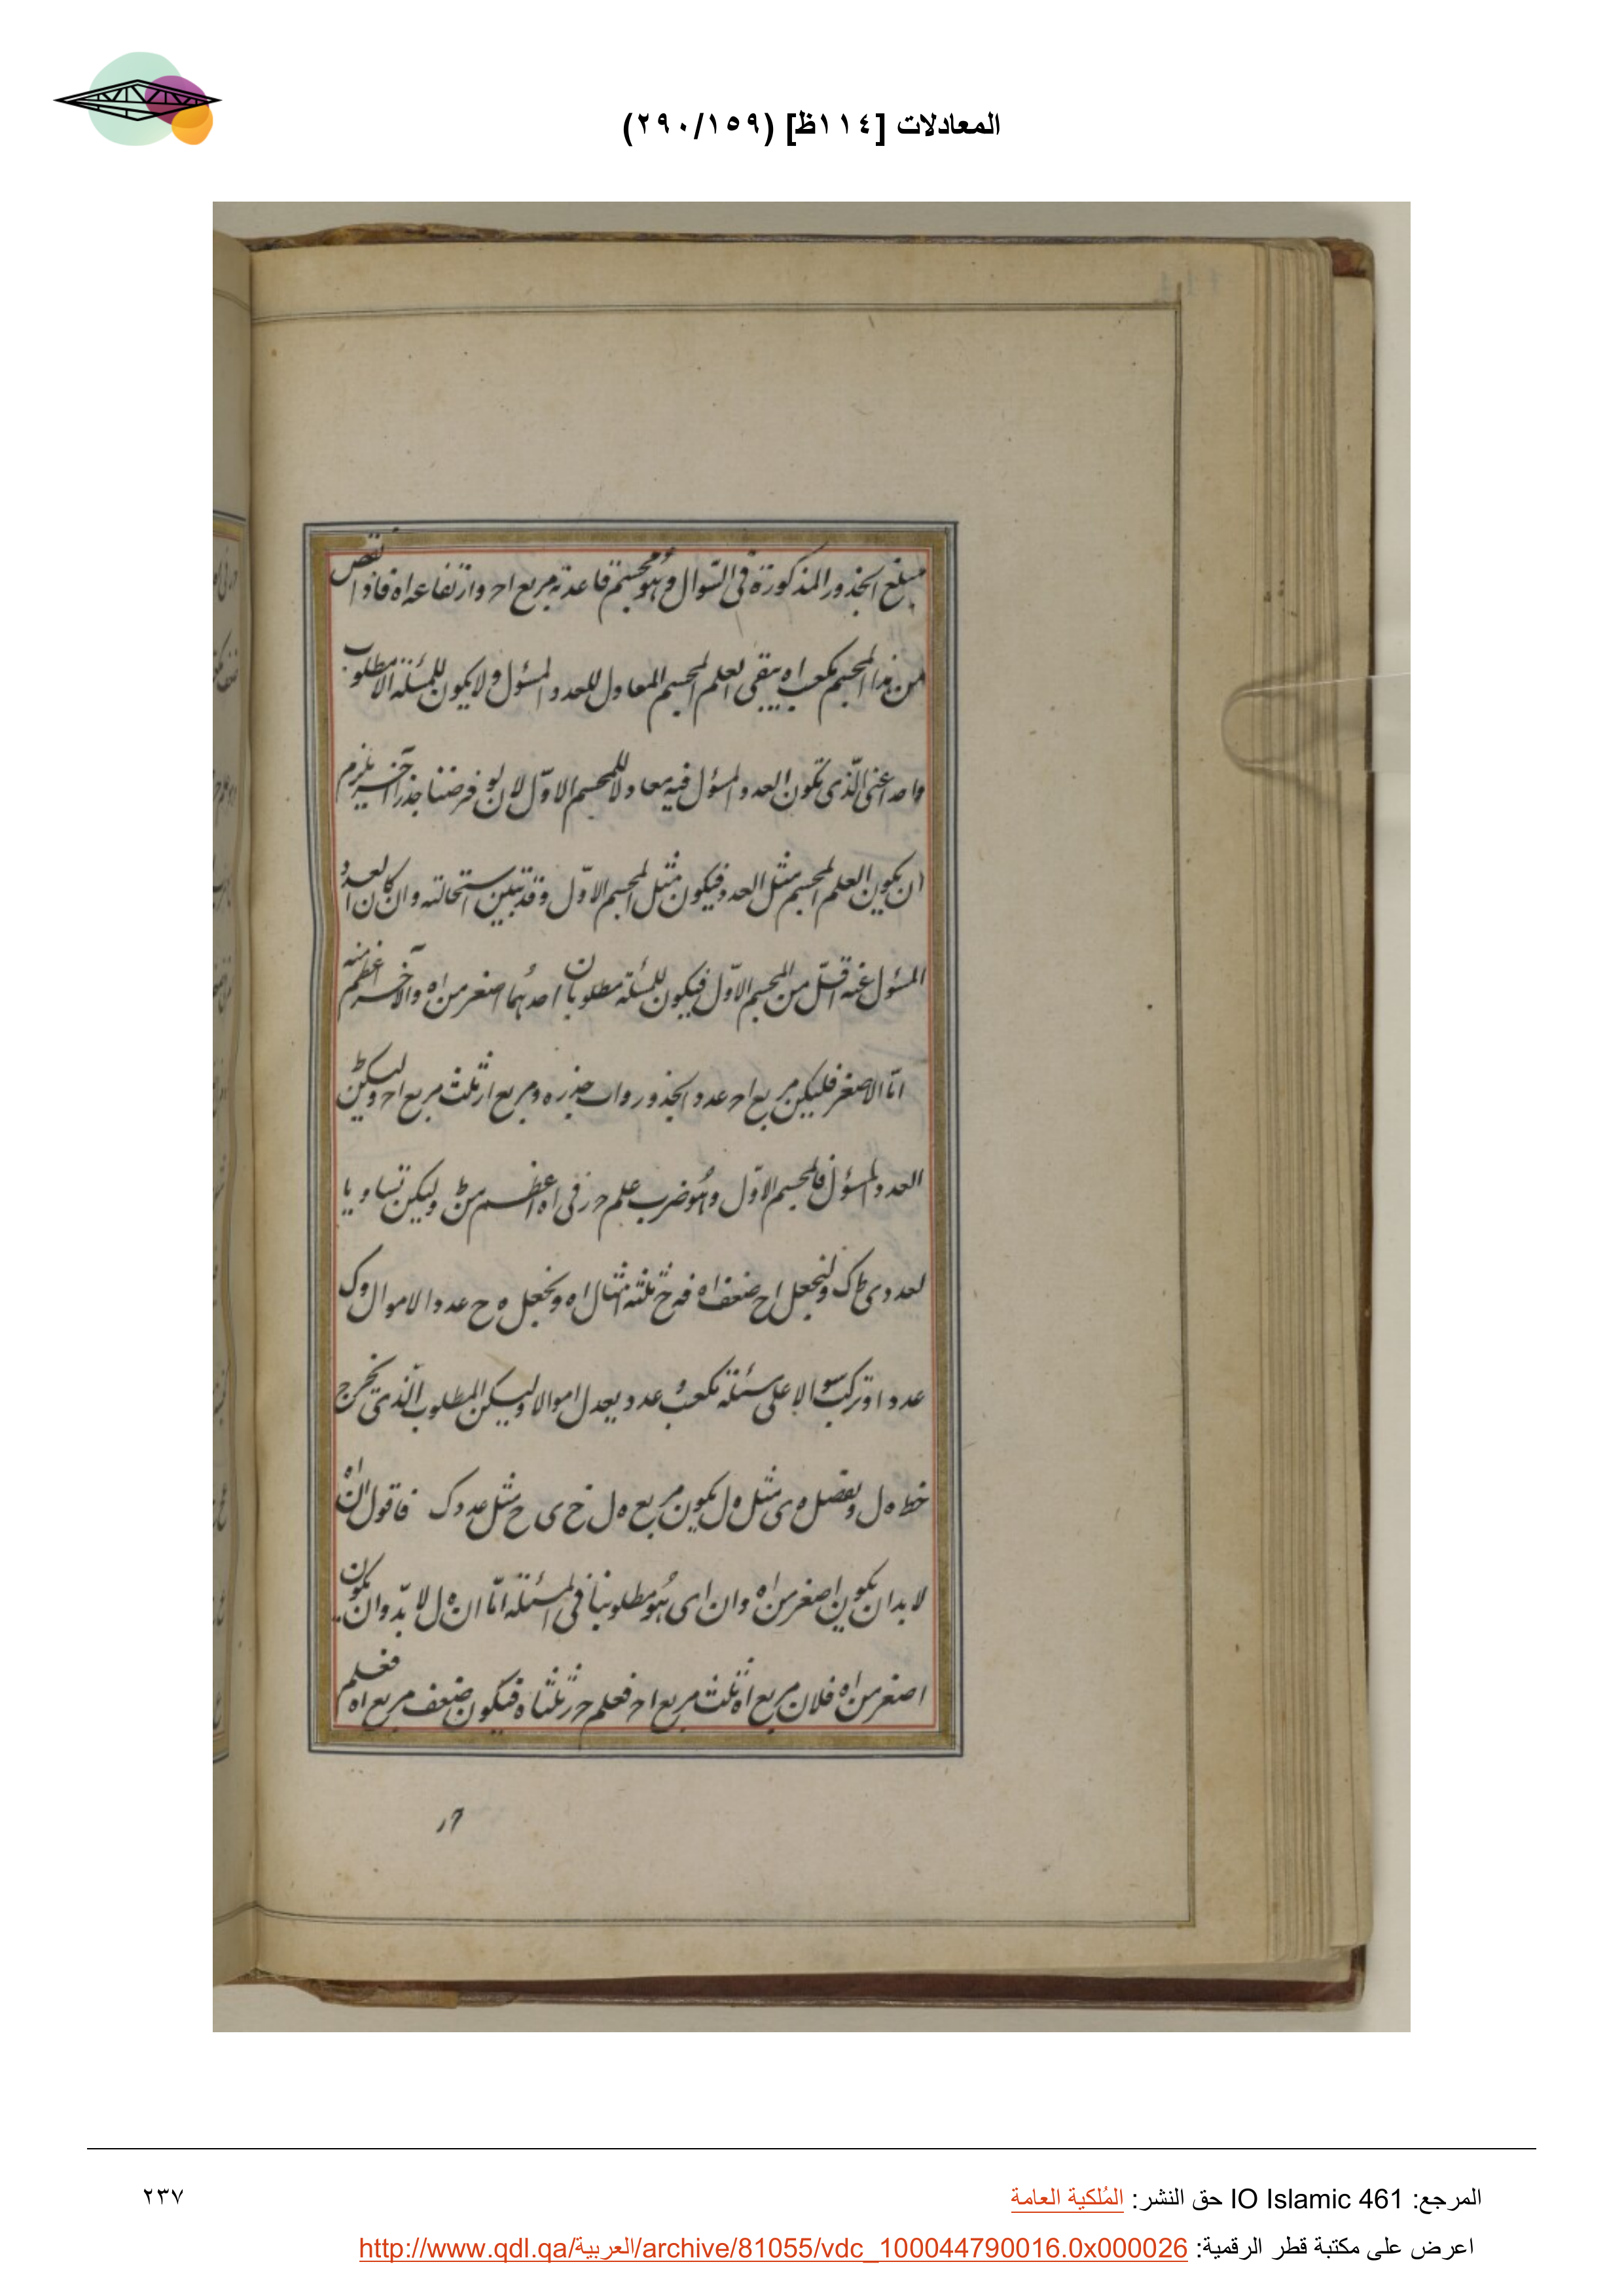 المعادلات [١١٤ظ] (٢٩٠/١٥٩)
مبلغ الجذور المذكورة فى السّوال وهُو مجسّم قاعدته مربع اح وارتفاعه اه فاذا نقص
من هذا المجسّم مكعب اه يبقى العلم المجسم المعادل للعدد المسؤل ولا يكون للمسئلة الا مطلوب
واحد اعنى الّذى تكون العدد المسؤل فيه معادلا للمجسم الاوّل لان لو فرضنا جذرا آخر يلزم
ان يكون العلم المجسم مثل العدد فيكون مثل المجسم الاوّل وقد تبين استحالته وان كان العدد
المسؤل عنه اقلّ من المجسم الاوّل فيكون للمسئلة مطلوبان احدهُما اصغر من اه والآخر اعظم منه
امّا الاصغر فليكن مربع اح عدد الجذور واب جذره ومربع ار ثلث مربع اح وليكن
العدد المسؤل فالمجسم الاوّل وهُو ضرب علم حر فى اه اعظم من وليكن تساويا
لعدد ى ط ك ولنجعل اح ضعف اه فه ح ثلثة امثال اه ونجعل ه ح عدد الاموال وك
عددا وتركب سوالا على مسئلة مكعب وعدد يعدل اموالا وليكن المطلوب الّذى يخرج
خط ه ل ويفصل ه ى مثل ه ل يكون مربع ه ل فى ى ح مثل عدد ك فاقول ان اه
لا بد ان يكون اصغر من اه وان اى هُو مطلوبنا فى المسئلة امّا ان ه ل لا بدّ وان يكون
اصغر من اه فلان مربع اه ثلث مربع اح فعلم حر ثلثاه فيكون ضعف مربع اه فعلم
حر
المرجع: IO Islamic 461 حق النشر: المُلكية العامة
٢٣٧
اعرض على مكتبة قطر الرقمية: http://www.qdl.qa/العربية/archive/81055/vdc_100044790016.0x000026